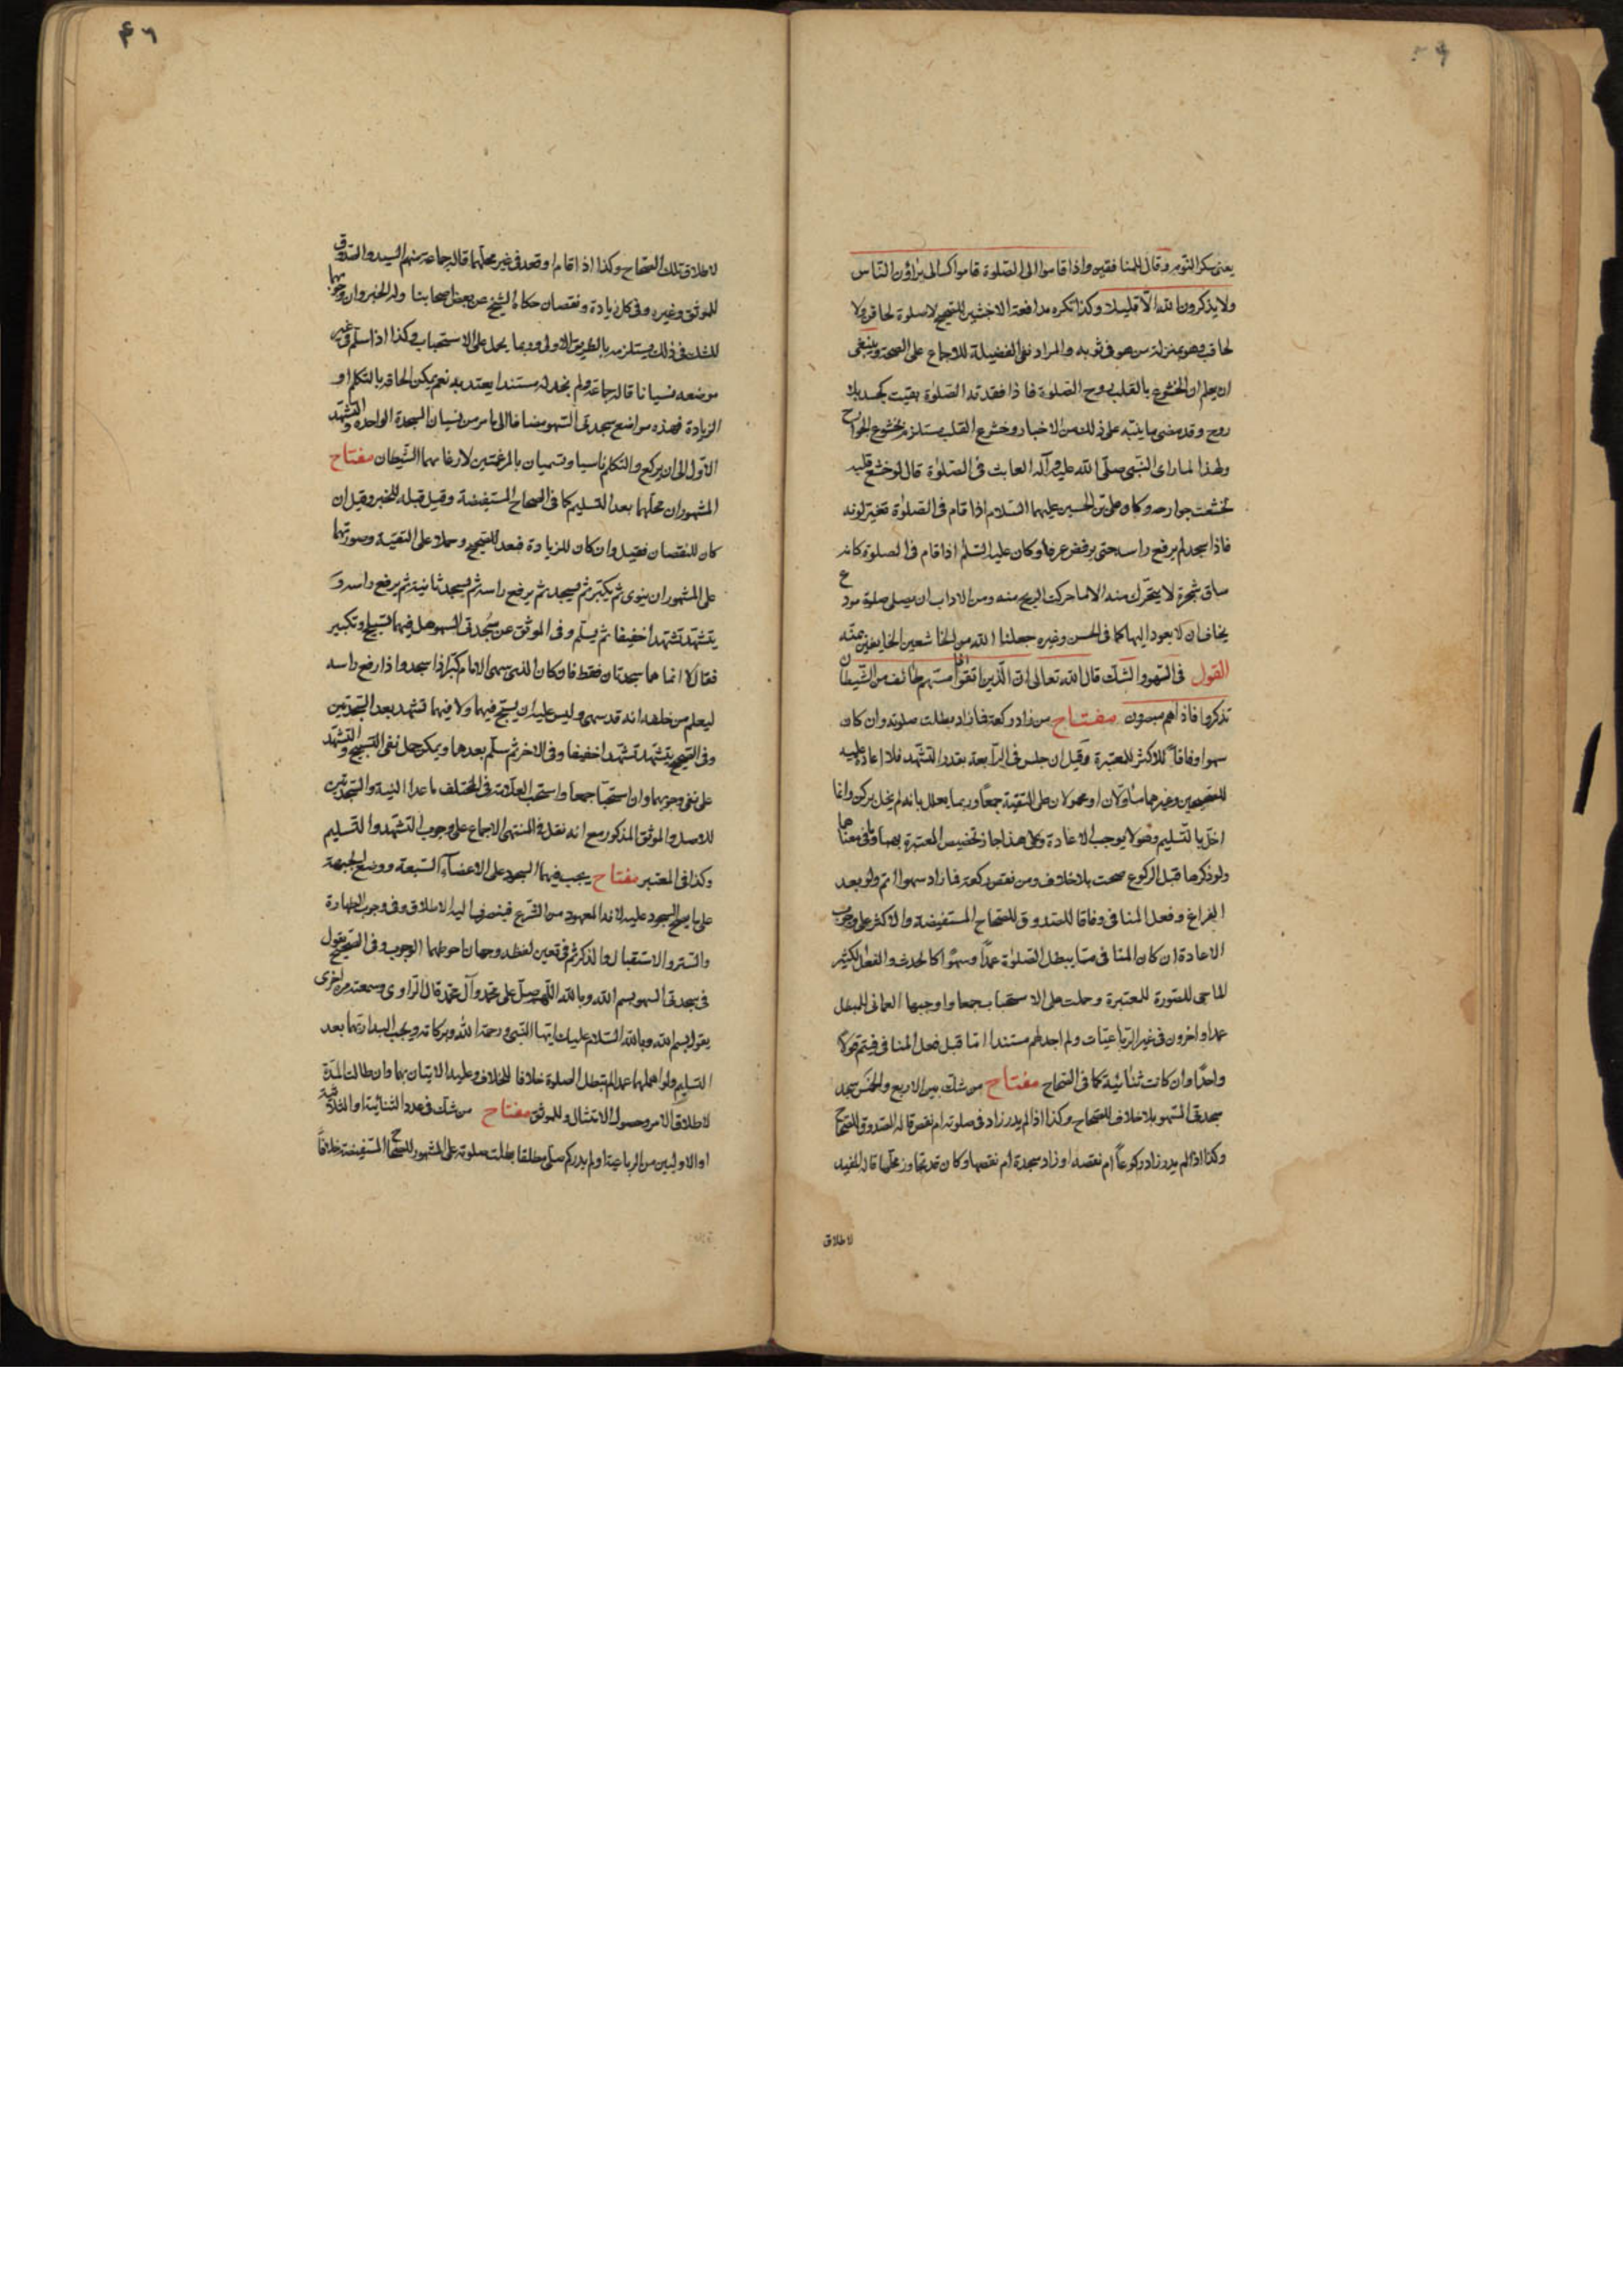 يعنى سكر النوم وقال للمنافقين واذا قاموا الى الصلوة قاموا كسالى يراؤن الناس
ولا يذكرون الله الا قليلا وكذا تكره مدافعة الاخبثين للصحيح لا صلوة لحاقن ولا
لحاقب وهو بمنزلة من هو فى ثوبه والمراد نفى الفضيلة للاجماع على الصحة وينبغى
ان يعلم ان الخشوع بالقلب روح الصلوة فاذا فقدته الصلوة بقيت كجسد بلا
روح وقد مضى ما ينبه على ذلك من الاخبار وخشوع القلب يستلزم خشوع الجوارح
ولهذا لما راى النبى صلى الله عليه وآله العابث فى الصلوة قال لو خشع قلبه
لخشعت جوارحه وكان على بن الحسين عليهما السلام اذا قام فى الصلوة تغير لونه
فاذا سجد لم يرفع راسه حتى يرفض عرقا وكان عليه السلم اذا قام فى الصلوة كانه
ساق شجرة لا يتحرك منه الا ما حركت الريح منه ومن الاداب ان يصلى صلوة مودع
يخاف ان لا يعود اليها كما فى الحسن وغيره جعلنا الله من الخاشعين الخائفين بمنه
القول فى السهو والشك قال الله تعالى ان الذين اتقوا اذا مسهم طائف من الشيطان
تذكروا فاذا هم مبصرون مفتاح من زاد ركعة فما زاد بطلت صلوته وان كان
سهوا وفاقا للاكثر للمعتبرة وقيل ان جلس فى الرابعة بقدر التشهد فلا اعادة عليه
للصحيحين وغيرهما مأولان او محمولان على التقية جمعا وربما يعلل بانه لم يخل بركن وانما
اخل بالتسليم وهو لا يوجب الاعادة وعلى هذا جاز تخصيص المعتبرة بهما وما فى معناهما
ولو ذكرها قبل الركوع صحت بلا خلاف ومن نقص ركعة فما زاد سهوا اتم ولو بعد
الفراغ وفعل المنافى وفاقا للصدوق للصحاح المستفيضة والاكثر على وجوب
الاعادة ان كان المنافى مما يبطل الصلوة عمدا وسهوا كالحدث والفعل الكثير
الماحى للصورة للمعتبرة وحملت على الاستحباب جمعا واوجبها العمانى للمبطل
عمدا واخرون فى غير الرباعيات ولم اجد لهم مستندا اما قبل فعل المنافى فيتم قولا
واحدا وان كانت ثنائية كما فى الصحاح مفتاح من شك بين الاربع والخمس سجد
سجدتى السهو بلا خلاف للصحاح وكذا اذا لم يدر زاد فى صلوته ام نقص قاله الصدوق للصحاح
وكذا اذا لم يدر زاد ركوعا ام نقصه او زاد سجدة ام نقصها وكان قد تجاوز محلها قاله المفيد
لاطلاق
لاطلاق تلك الصحاح وكذا اذا قام او قعد فى غير محلهما قاله جماعة منهم السيد والصدوق
للموثق وغيره وفى كل زيادة ونقصان حكاه الشيخ عن بعض اصحابنا وله الخبر وان وجوبهما
للشك فى ذلك يستلزمه بالطريق الاولى وربما يحمل على الاستحباب وكذا اذا سلم فى غير
موضعه نسيانا قاله جماعة ولم نجد له مستندا يعتد به نعم يمكن الحاقه بالتكلم او
الزيادة فهذه مواضع سجدتى السهو مضافا الى ما مر من نسيان السجدة الواحدة والتشهد
الاول الى ان يركع والتكلم ناسيا وتسميان بالمرغمتين لارغامهما الشيطان مفتاح
المشهور ان محلهما بعد التسليم كما فى الصحاح المستفيضة وقيل قبله للخبر وقيل ان
كان للنقصان فقبل وان كان للزيادة فبعد للصحيح وحملا على التقية وصورتهما
على المشهور ان ينوى ثم يكبر ثم يسجد ثم يرفع راسه ثم يسجد ثانية ثم يرفع راسه و
يتشهد تشهدا خفيفا ثم يسلم وفى الموثق عن سجدتى السهو هل فيهما تسبيح او تكبير
فقال لا انما هما سجدتان فقط فان كان الذى سهى الامام كبر اذا سجد واذا رفع راسه
ليعلم من خلفه انه قد سهى وليس عليه ان يسبح فيهما ولا فيهما تشهد بعد السجدتين
وفى الصحيح يتشهد تشهدا خفيفا وفى الاخر ثم سلم بعدها ويمكن حمل نفى التسبيح والتشهد
على نفى وجوبهما وان استحبا جمعا واستحب العلامة فى المختلف ما عدا النية والسجدتين
للاصل والموثق المذكور مع انه نقل فى المنتهى الاجماع على وجوب التشهد والتسليم
وكذا فى المعتبر مفتاح يجب فيهما السجود على الاعضاء السبعة ووضع الجبهة
على ما يصح السجود عليه لانه المعهود من الشرع فينصرف اليه الاطلاق وفى وجوب الطهارة
والستر والاستقبال والذكر ثم فى تعين لفظه وجهان احوطهما الوجوب وفى الصحيح يقول
فى سجدتى السهو بسم الله وبالله اللهم صل على محمد وآل محمد قال الراوى وسمعته مرة اخرى
يقول بسم الله وبالله السلام عليك ايها النبى ورحمة الله وبركاته ويجب المبادرة بهما بعد
التسليم ولو اهملهما عمدا لم تبطل الصلوة خلافا للخلاف وعليه الاتيان بهما وان طالت المدة
لاطلاق الامر وحصول الامتثال وللموثق مفتاح من شك فى عدد الثنائية او الثلاثية
او الاوليين من الرباعية او لم يدر كم صلى مطلقا بطلت صلوته على المشهور للصحاح المستفيضة خلافا